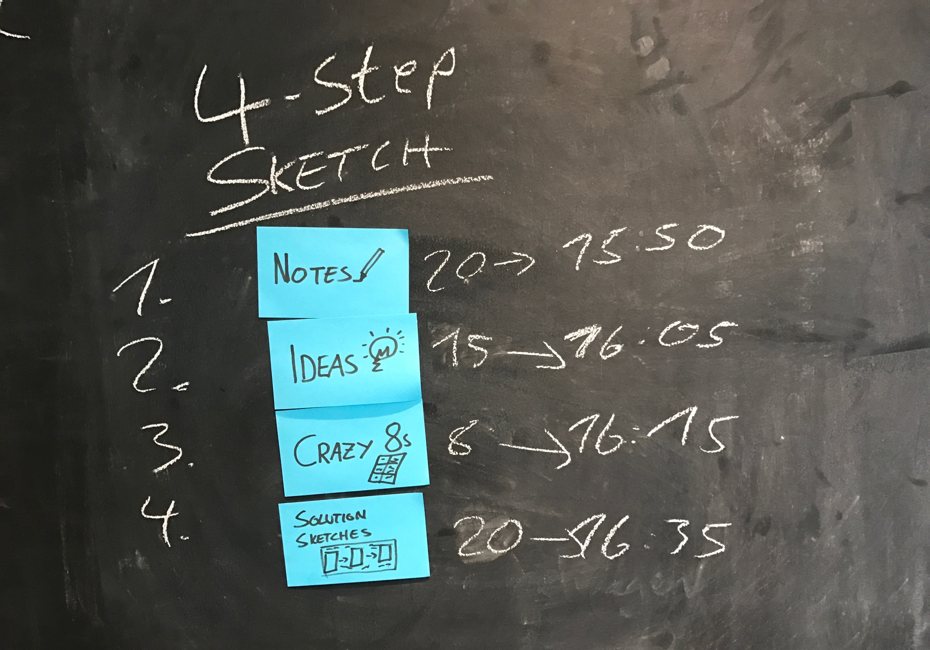 4-Step
SKETCH
1. NOTES 20 → 15:50
2. IDEAS 15 → 16:05
3. CRAZY 8s 8 → 16:15
4. SOLUTION
SKETCHES 20 → 16:35